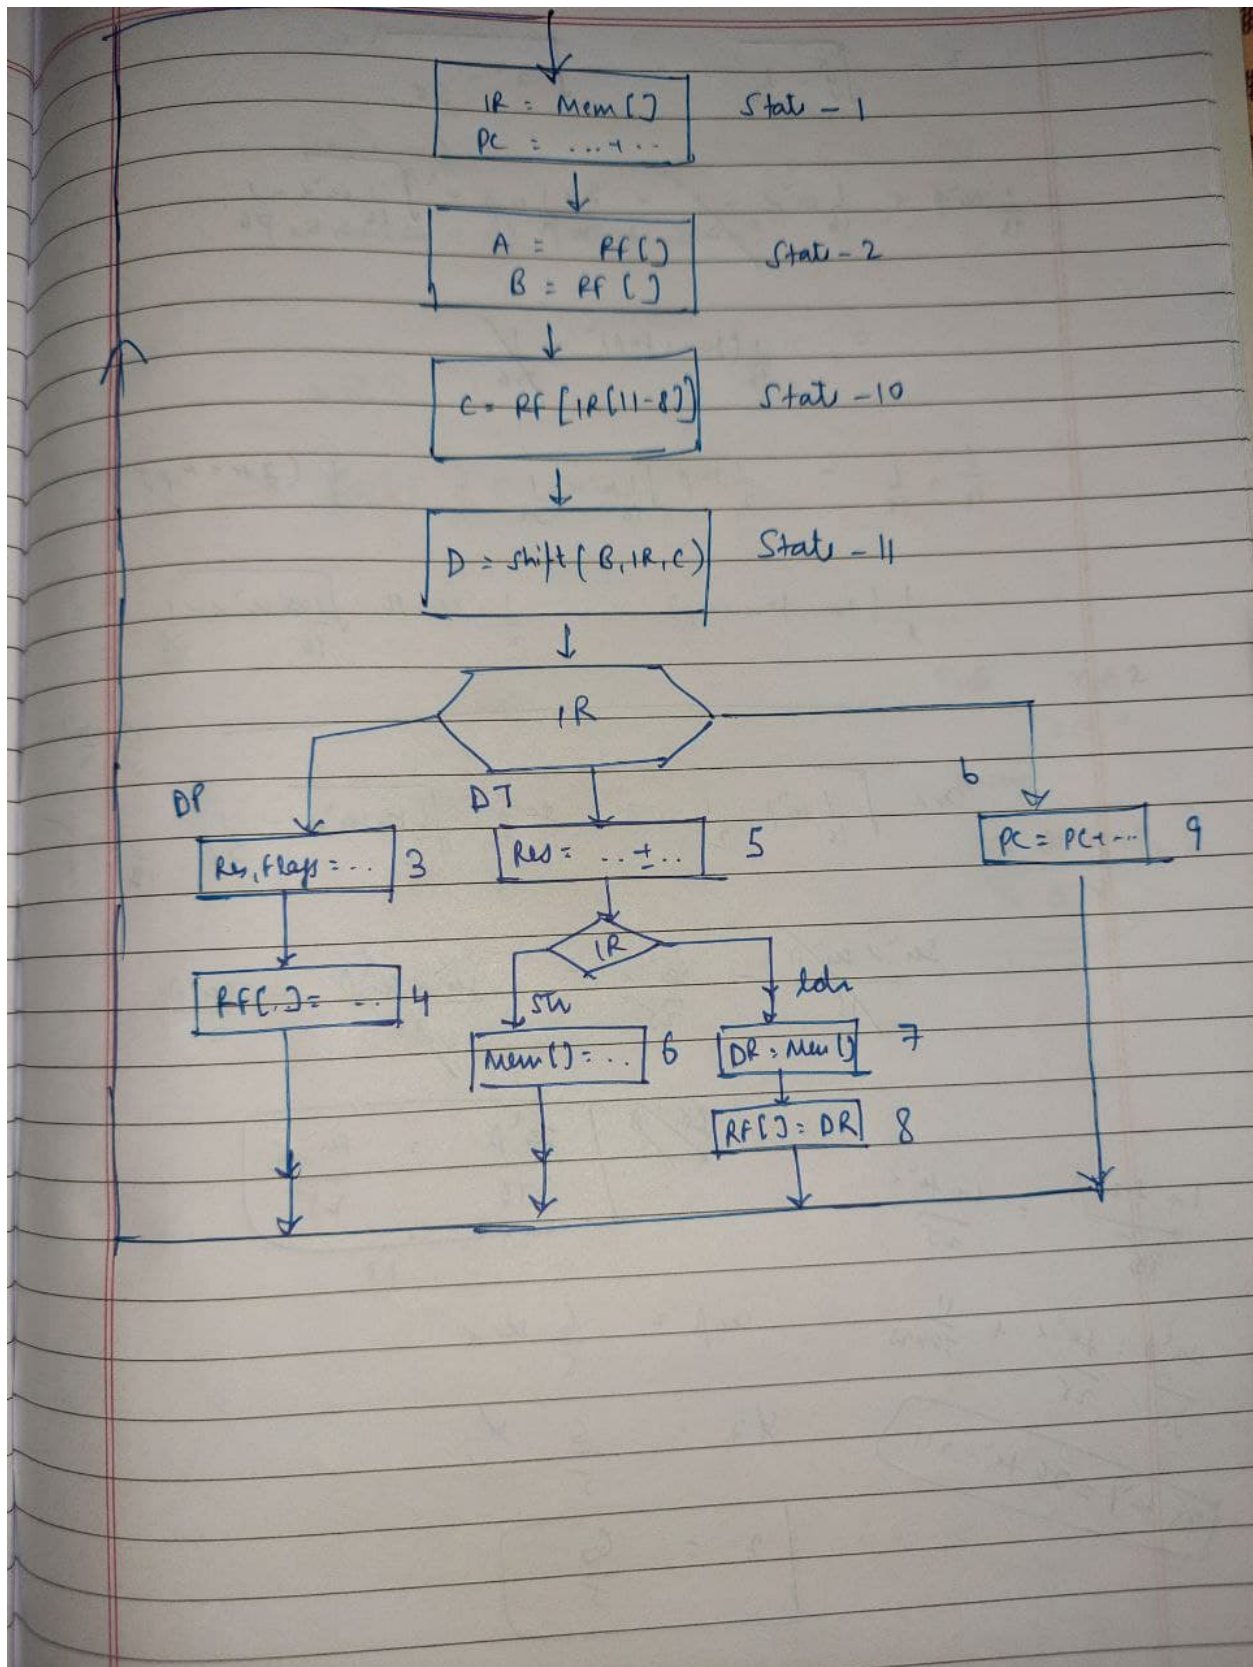 IR = Mem[] State - 1
PC = ...+..
A = RF[] State - 2
B = RF[]
C = RF[IR[11-8]] State - 10
D = shift(B, IR, C) State - 11
IR
DP DT b
Res, flags = ... 3 Res = ..±.. 5 PC = PC+... 9
IR
str ldr
RF[.] = ... 4 Mem[] = .. 6 DR = Mem[] 7
RF[] = DR 8